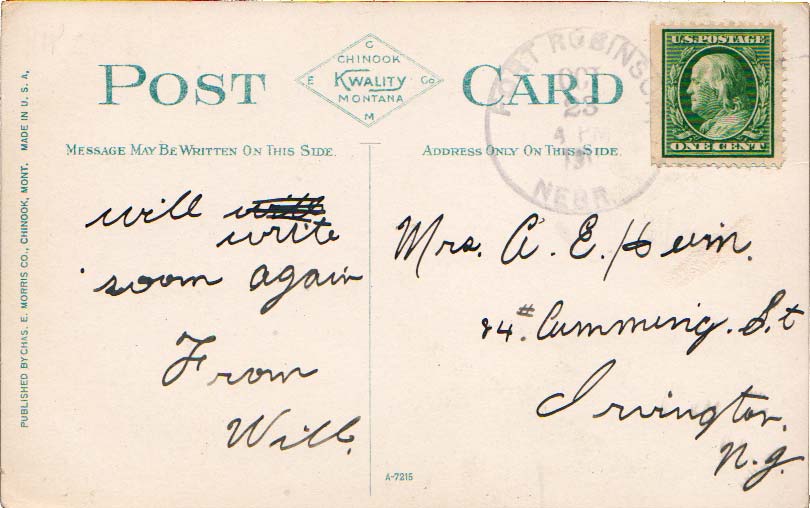 POST CARD
C
CHINOOK
E KWALITY Co.
MONTANA
M
MESSAGE MAY BE WRITTEN ON THIS SIDE.
ADDRESS ONLY ON THIS SIDE.
PUBLISHED BY CHAS. E. MORRIS CO., CHINOOK, MONT. MADE IN U. S. A.
FORT ROBINSON
OCT
25
4 PM
NEBR.
U.S. POSTAGE
ONE CENT
will will
write
soon again
From
Will.
Mrs. A. E. Hevin.
24 #. Cumming. S.t
Irvington.
N.J.
A-7215